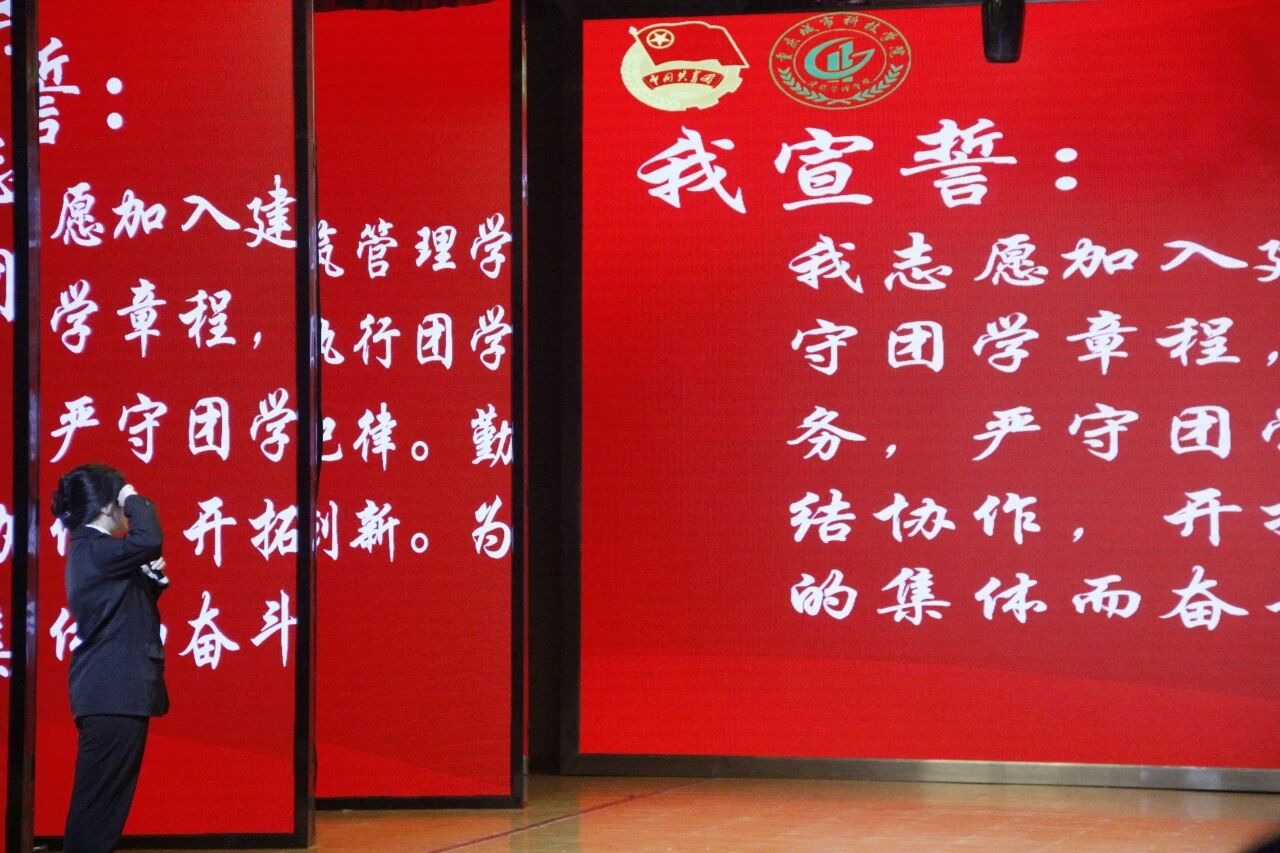 誓：
愿加入建
学章程，
严守团学
开拓
奋斗
筑管理学
执行团学
纪律。勤
创新。为
中国共青团
重庆城市科技学院
建筑管理学院
我宣誓：
我志愿加入建
守团学章程，
务，严守团学
结协作，开拓
的集体而奋